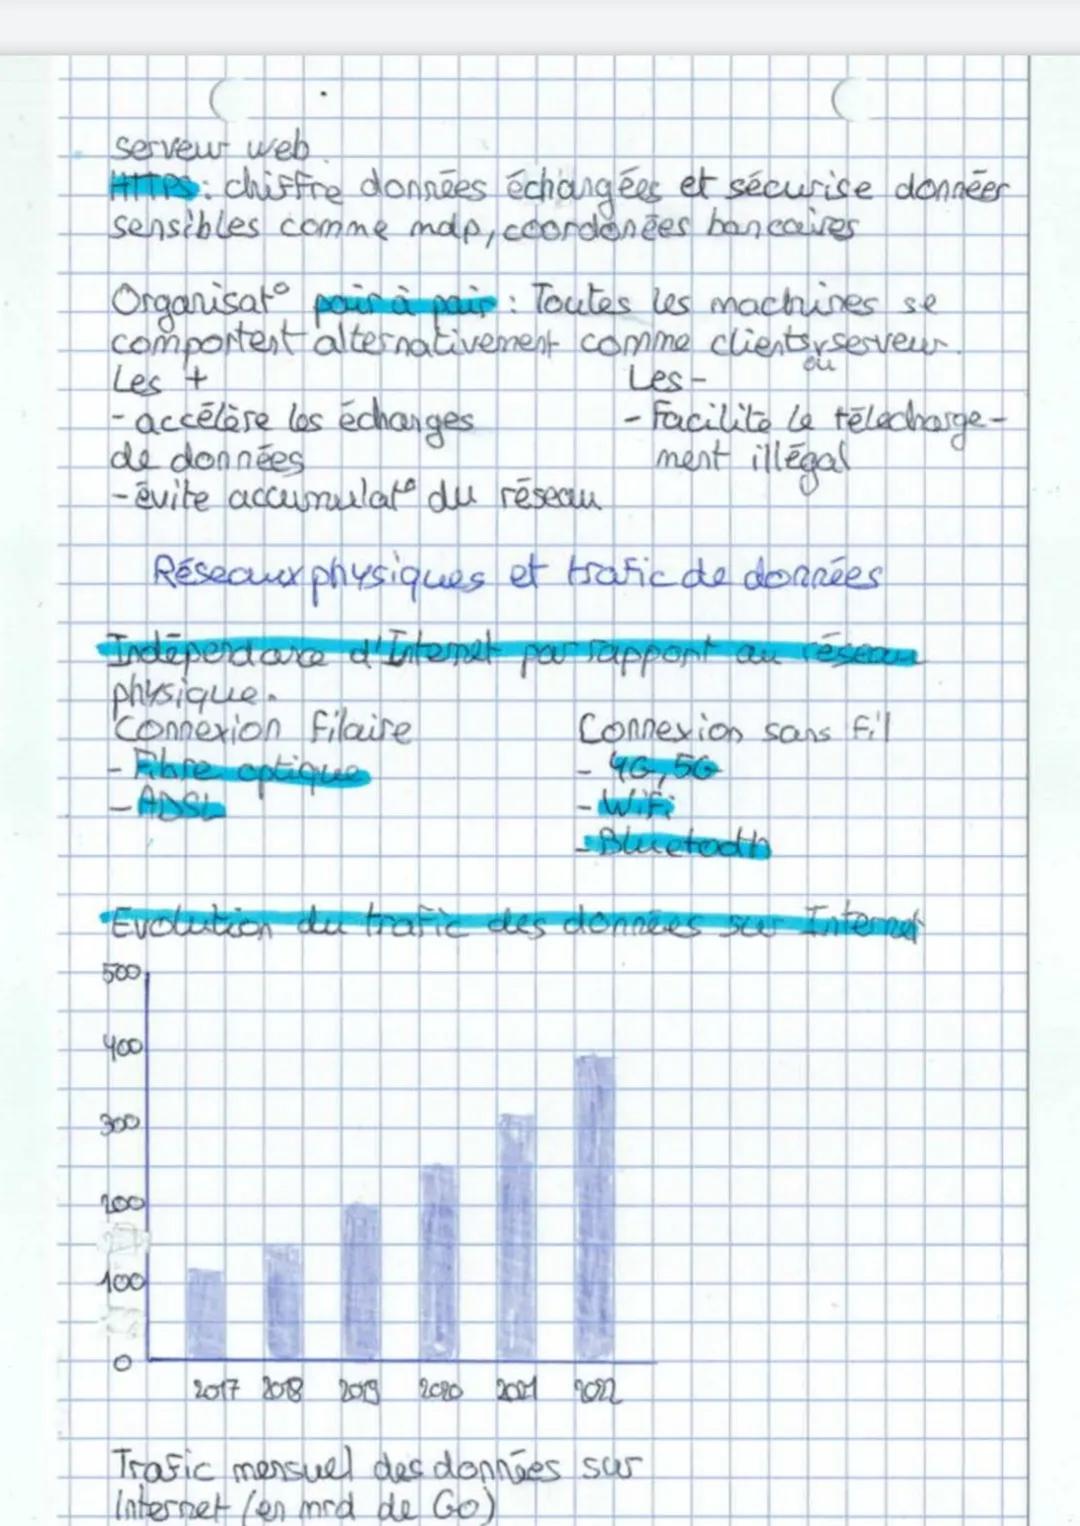 serveur web.
HTTPS : chiffre données échangées et sécurise données
sensibles comme mdp, coordonées bancaires
Organisat° pair à pair : Toutes les machines se
comportent alternativement comme clients serveur.
ou
Les +
- accélère les échanges
de données
- évite accumulat° du réseau
Les -
- Facilite le télecharge-
ment illégal
Réseaux physiques et trafic de données
Indépendance d'Internet par rapport au réseau
physique.
Connexion filaire
- Fibre optique
- ADSL
Connexion sans fil
- 4G, 5G
- WiFi
- Bluetooth
Evolution du trafic des données sur Internet
500
400
300
200
100
0
2017 2018 2019 2020 2021 2022
Trafic mensuel des données sur
Internet (en mrd de Go)